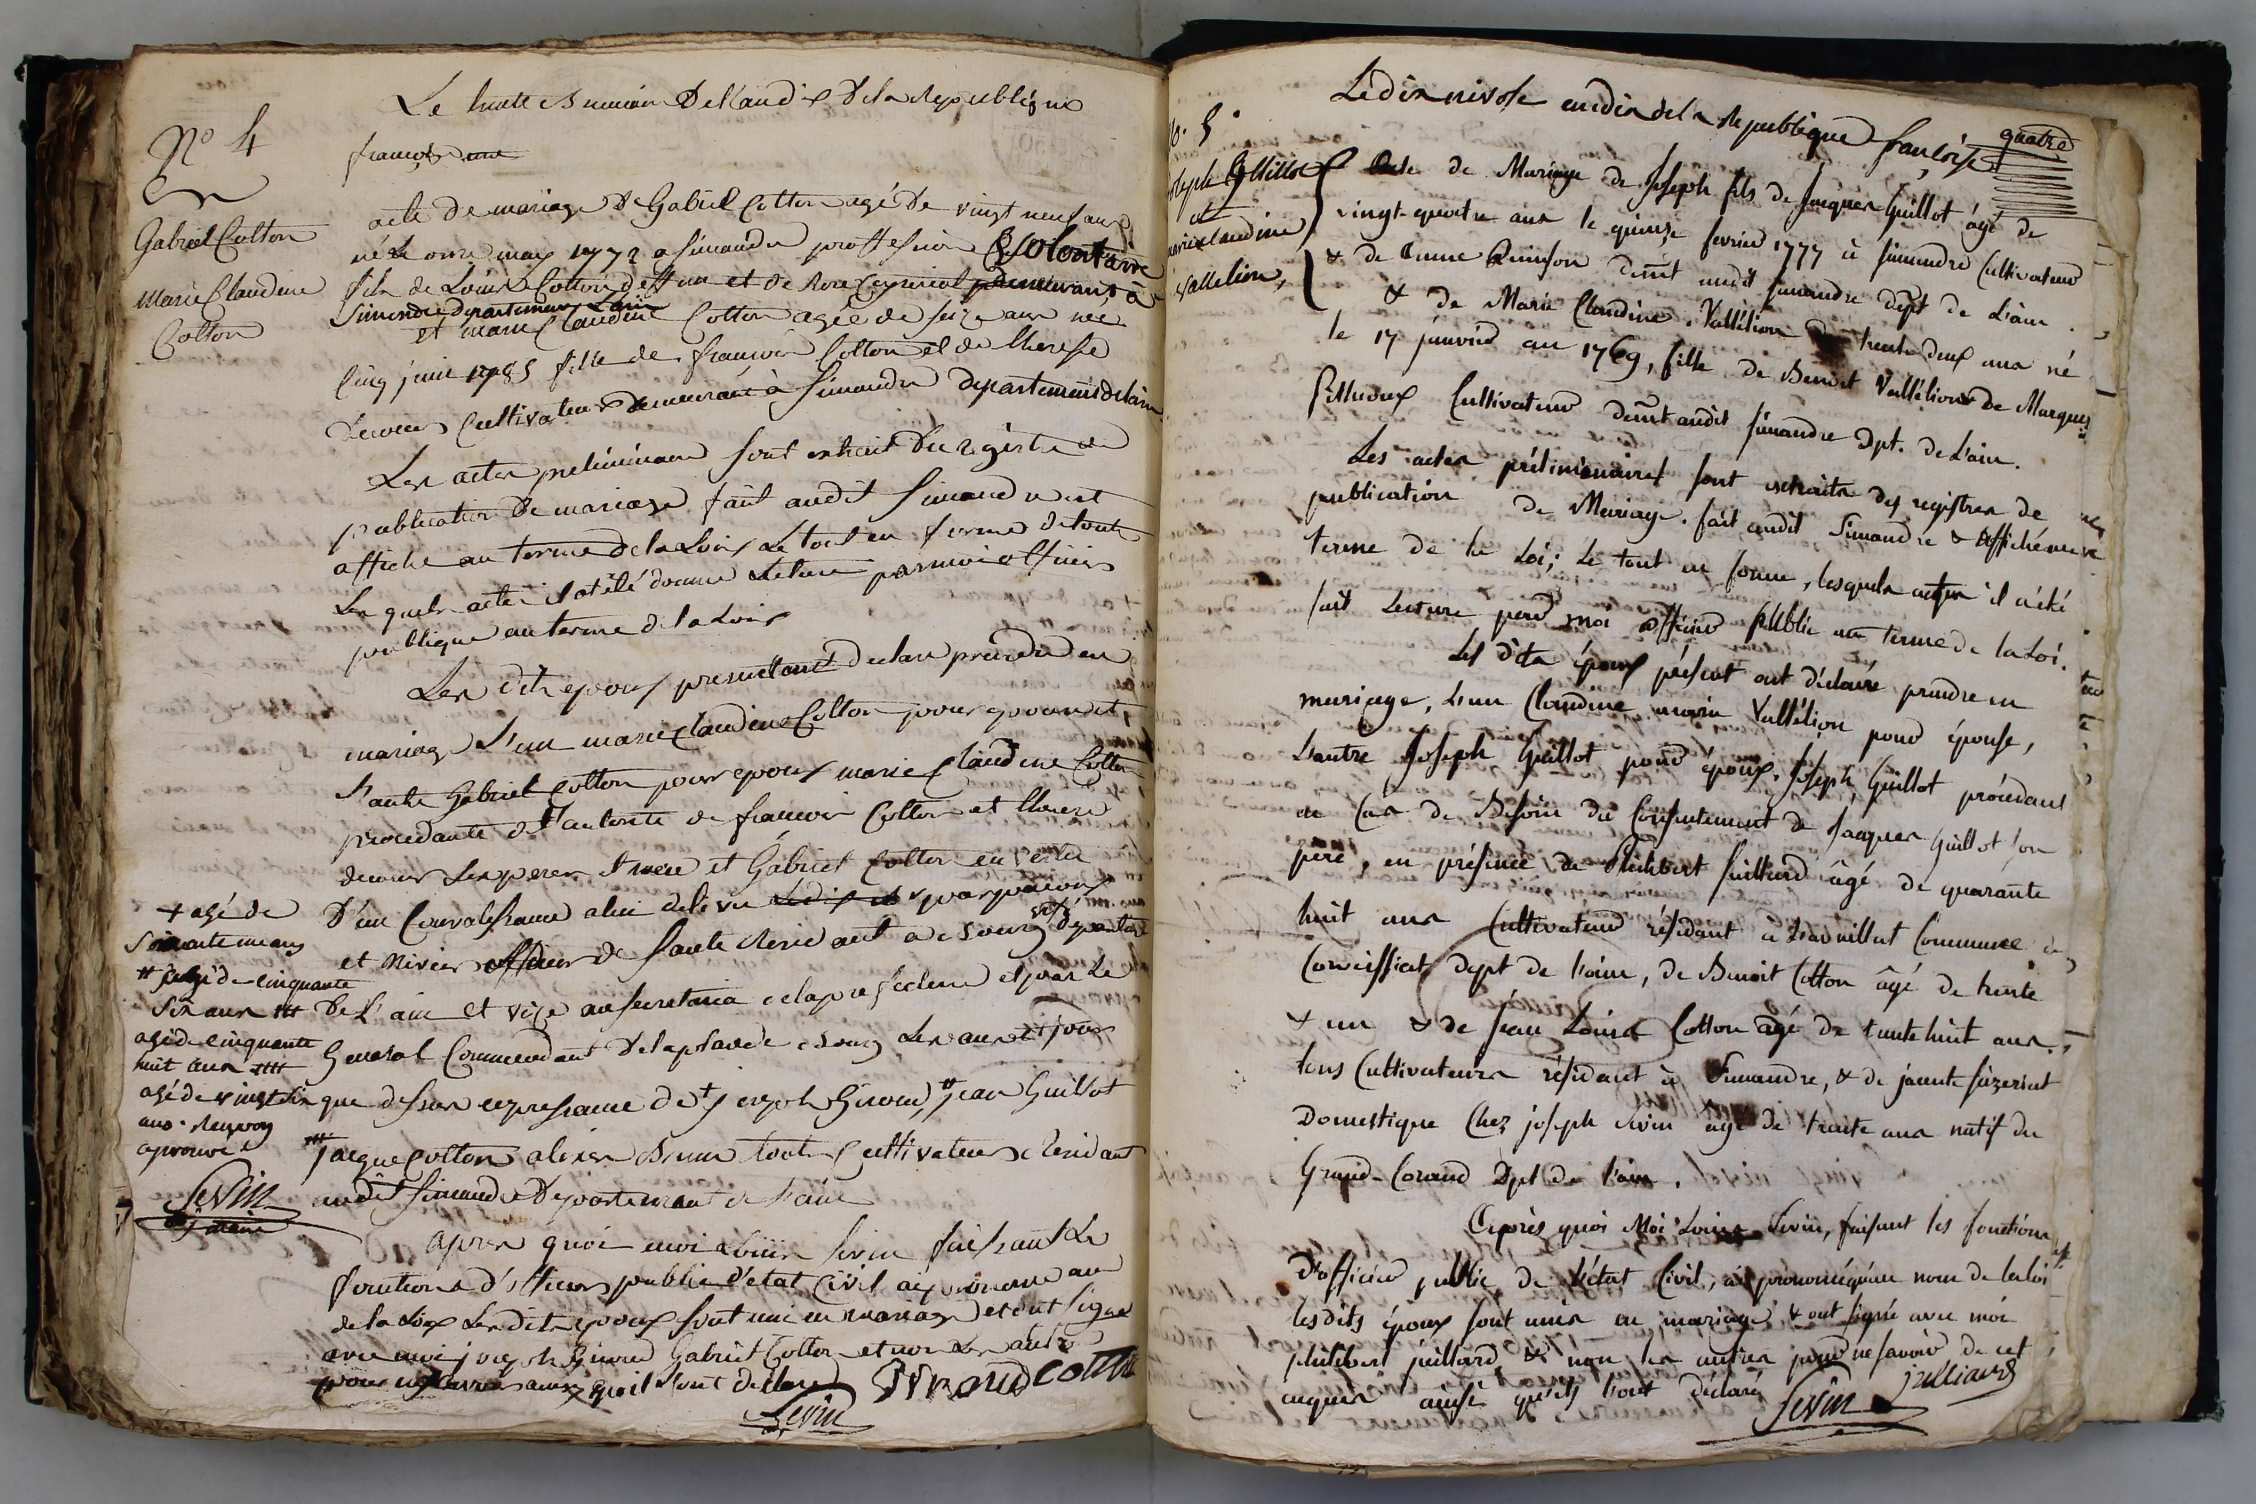 Le huit Brumaire de l'an dix de la Republique
françoise
No 4
Gabriel Cotton
Marie Claudine
Cotton
acte de mariage de Gabriel Cotton agé de vingt neuf ans
né le onze may 1772 a Simandre proffession volontaire
fils de Louis Cotton deffun et de Rose demeurant à
Simandre departement Lain
et marie Claudine Cotton agée de seize ans née
cinq juin 1785 fille de françois Cotton et de therese
cultivateurs demeurant à Simandre departement de lain
Les actes preliminaire sont extrait du registre de
publication de mariage fait audit Simandre et
affiche au terme de la Loix Le tout en forme de tout
Les quels acte il at été donné Lecture par moi officier
publique au terme de la Loix
Les dits epoux presentant declare prendre en
mariage L'un marie Claudine Cotton pour epouse et
l'autre Gabriel Cotton pour epoux marie Claudine Cotton
procedante de l'autorité de françois Cotton et therese
Les peres et mere et Gabriel Cotton en vertu
D'un Convalessance a lui delivré par
et Rivier officier de Santé Residant a Bourg departement
De L'ain et vize au Secretaria de la prefecture et par Le
General Commendant de la place de Bourg Les ans et jour
que dessus en presance de + joseph Giroud, # jean Guillot
### jacque Cotton alexis Brun tout Cultivateurs Residant
audit Simandre Departement de l'ain
+ agé de
Soixante un ans
# agé de cinquante
six ans ###
agé de cinquante
huit ans ####
agé de vingt six
ans
aprouvé
Sevin
maire
apres quoi moi Louis Sevin faissant Les
fonctions d'officier public d'état Civil ai prononcé au
de la Loix Les dits epoux sont uni en mariage et ont signé
avec moi joseph Giroud Gabriel Cotton et non Les autre
pour ne savoir ainsi qu'il l'ont declaré
Giroud Cotton
Sevin
Le dix nivose an dix de la Republique françoise
quatre
No. 5.
Joseph Guillot
et
marie claudine
Vallelion,
Acte de Mariage de Joseph fils de Jacques Guillot âgé de
vingt-quatre ans le quinze fevrier 1777 à Simandre Cultivateur
& de Anne demt audit Simandre dept de L'ain.
& de Marie Claudine Vallélion de trente deux ans né
le 17 janvier an 1769, fille de Benoit Vallélion & de Margueri
Pitheoux Cultivateur demt audit Simandre Dpt. de L'ain.
Les actes préliminaires sont extraits des registres de
publication de Mariage fait audit Simandre & affiché au
terme de la Loi; Le tout en forme, lesquels actes il a été
fait Lecture par moi officier Public au terme de la Loi.
Les dits époux présent ont déclaré prendre en
mariage, L'un Claudine marie Vallélion pour épouse,
L'autre Joseph Guillot pour époux, Joseph Guillot procédant
au Cas de Besoin du Consentement de Jacques Guillot son
pere, en présence de Philibert Juilliard âgé de quarante
huit ans Cultivateur résidant à Commune de
Dept de l'ain, de Benoit Cotton âgé de trente
& un & de Jean Louis Cotton âgé de trente huit ans,
tous Cultivateurs résidant à Simandre, & de
Domestique Chez joseph Sivin âgé de trente ans natif du
Grand-Corand Dpt de l'ain.
Après quoi Moi Louis Sevin, faisant les fonctions
d'officier public de l'état Civil, ai prononcé qu'au nom de la loi
lesdits époux sont unis en mariage & ont signé avec moi
philibert juilliard & non les autres pour ne savoir de cet
enquis ainsi qu'ils l'ont déclaré
Sevin
julliard